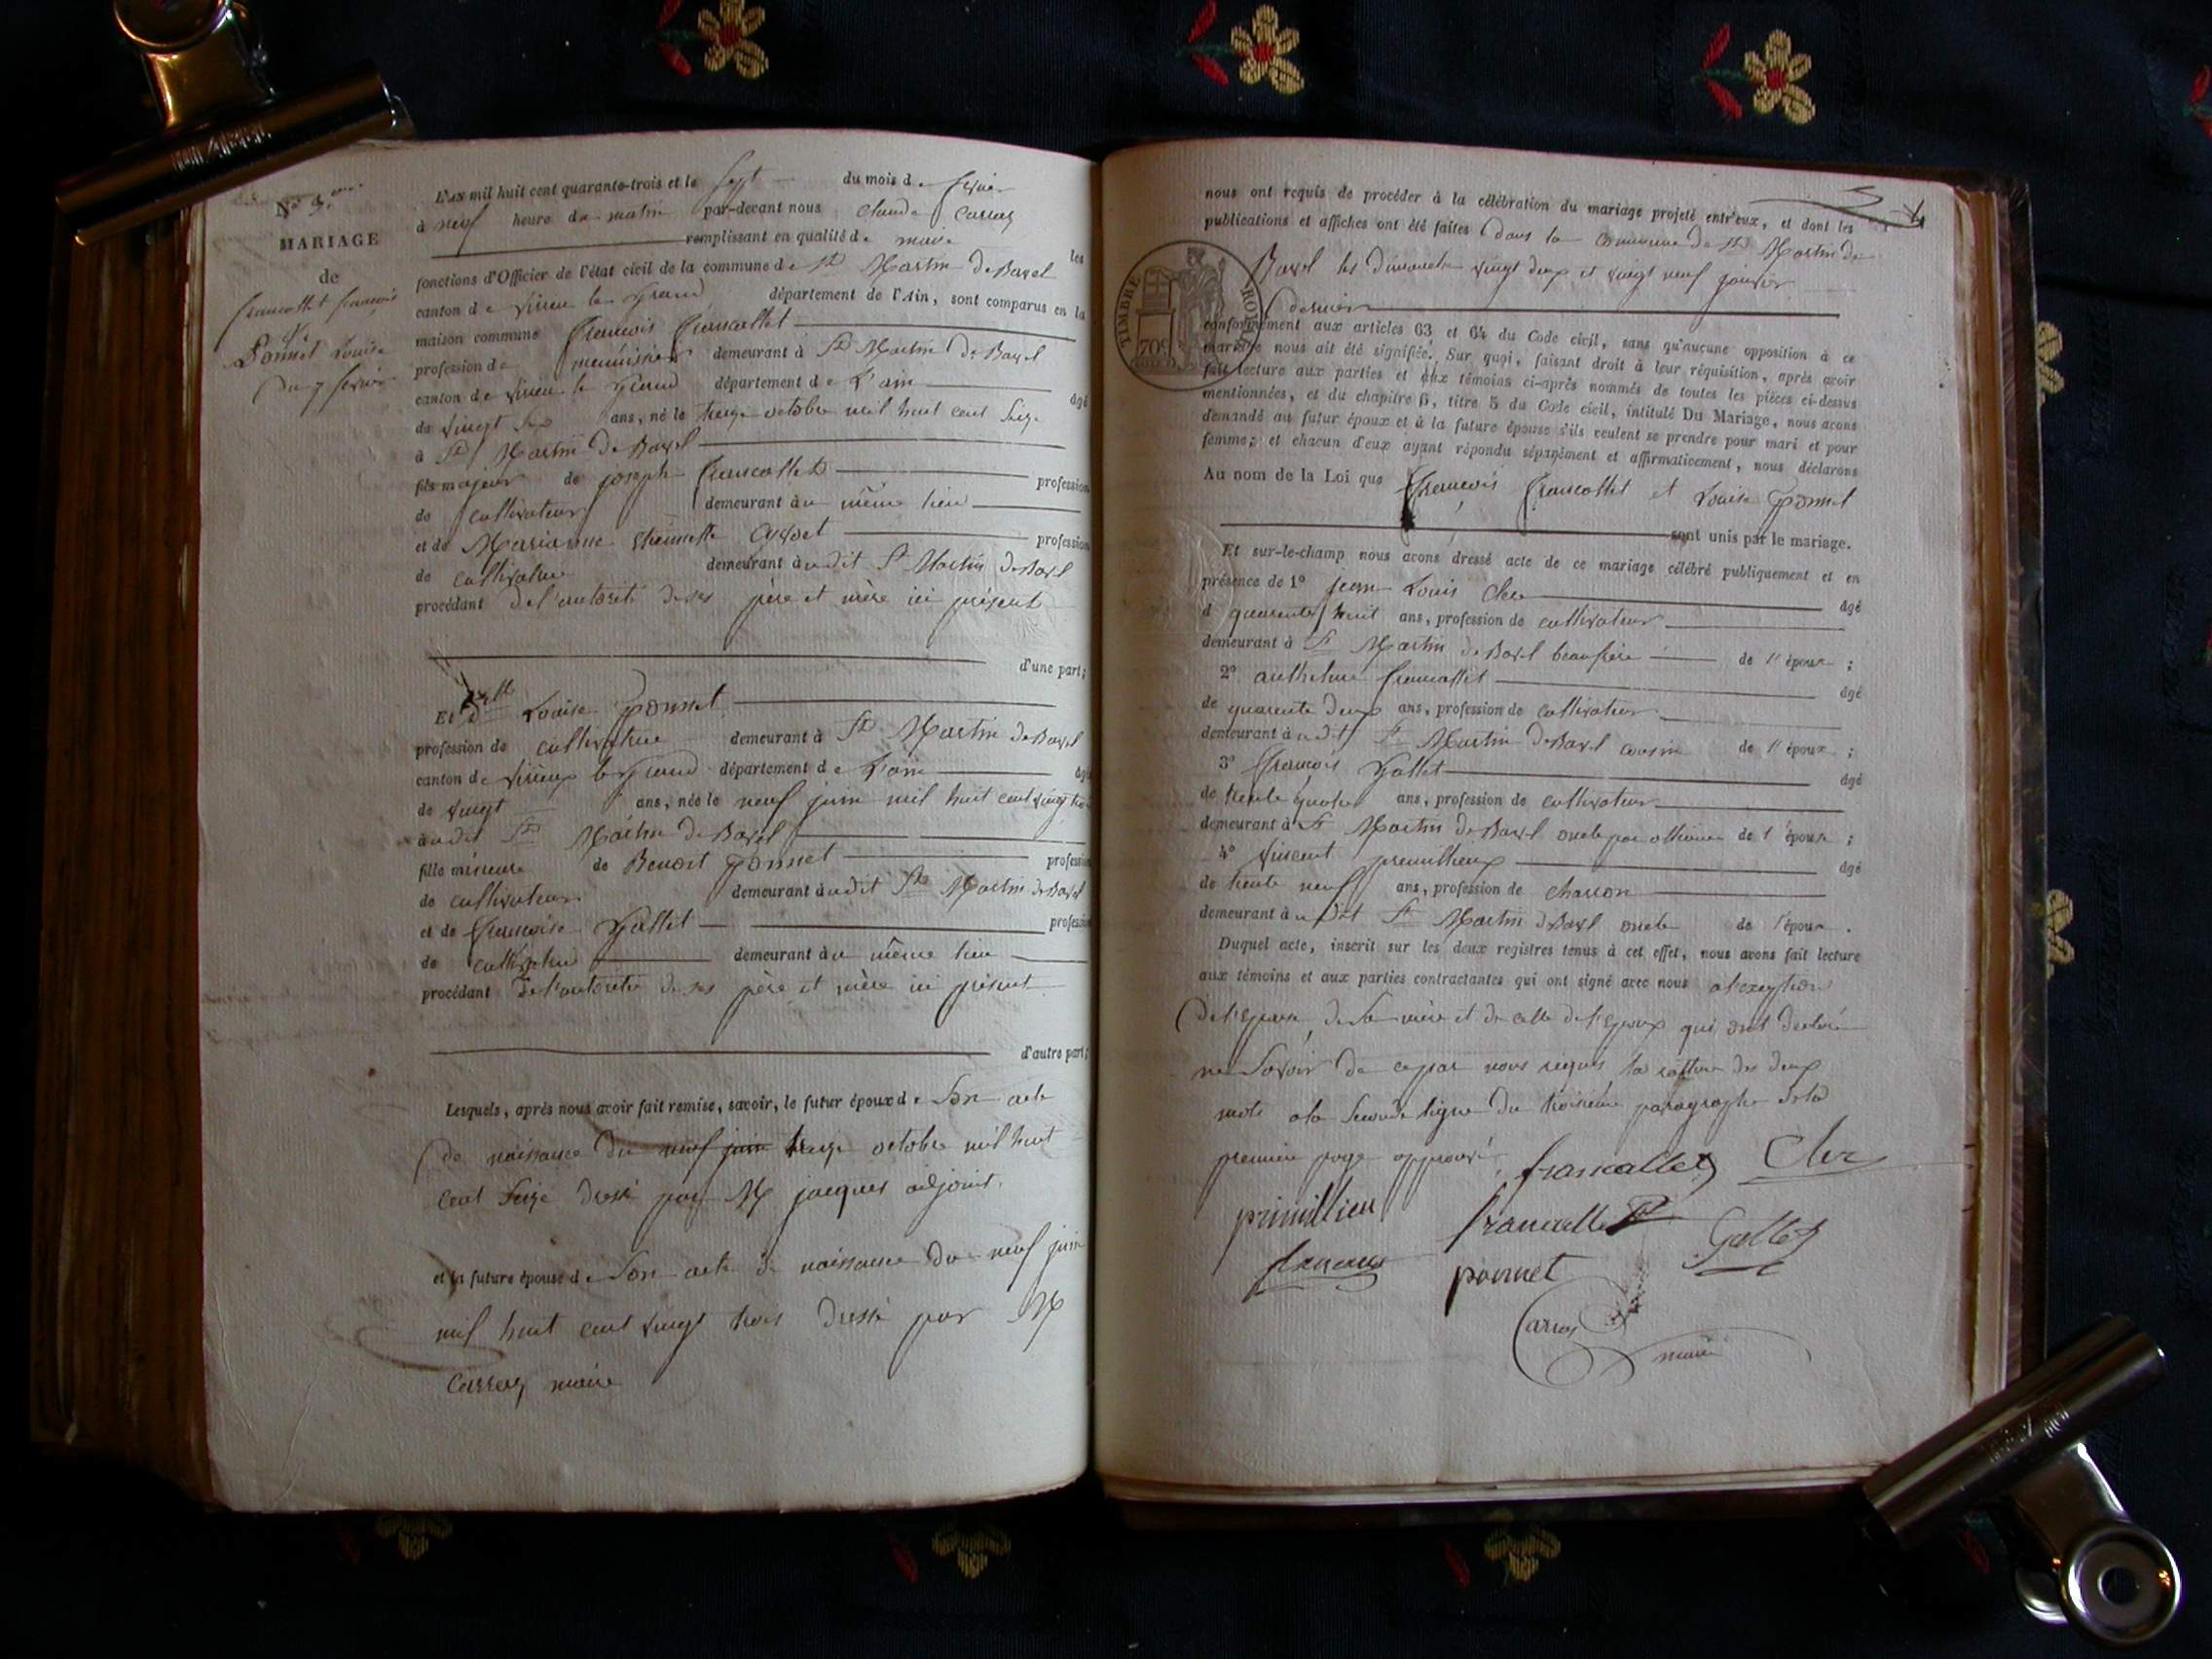 No 3.
MARIAGE
de
francallet françois
&
Ponnet Louise
du 7 fevrier
L'an mil huit cent quarante-trois et le sept du mois de fevrier
à neuf heure du matin par-devant nous Claude Carrey
remplissant en qualité de maire les
fonctions d'Officier de l'état civil de la commune de St Martin de Bavel
canton de Virieu le Grand département de l'Ain, sont comparus en la
maison commune François Francallet
profession de menuisier demeurant à St Martin de Bavel
canton de Virieu le Grand département de L'ain âgé
de vingt six ans, né le treize octobre mil huit cent seize
à St Martin de Bavel
fils majeur de joseph francallet profession
de cultivateur demeurant au même lieu
et de Marianne thennette profession
de cultivatrice demeurant audit St Martin de Bavel
procédant de l'autorité de ses père et mère ici présent
d'une part;
Et dlle Louise Ponnet
profession de cultivatrice demeurant à St Martin de Bavel
canton de Virieux le Grand département de L'ain âgé
de vingt ans, née le neuf juin mil huit cent vingt trois
audit St Martin de Bavel
fille mineure de Benoit Ponnet profession
de cultivateur demeurant audit St Martin de Bavel
et de Françoise Gallet profession
de cultivatrice demeurant au même lieu
procédant de l'autorité de ses père et mère ici présent
d'autre part;
Lesquels, après nous avoir fait remise, savoir, le futur époux de son acte
de naissance du neuf juin treize octobre mil huit
cent seize dressé par M jacques adjoint.
et la future épouse de son acte de naissance du neuf juin
mil huit cent vingt trois dressé par M
Carrey maire
nous ont requis de procéder à la célébration du mariage projeté entr'eux, et dont les
publications et affiches ont été faites dans la commune de St Martin de
Bavel les dimanche vingt deux et vingt neuf janvier
dernier
TIMBRE ROYAL
70c
conformément aux articles 63 et 64 du Code civil, sans qu'aucune opposition à ce
mariage nous ait été signifiée. Sur quoi, faisant droit à leur réquisition, après avoir
fait lecture aux parties et aux témoins ci-après nommés de toutes les pièces ci-dessus
mentionnées, et du chapitre 6, titre 5 du Code civil, intitulé Du Mariage, nous avons
demandé au futur époux et à la future épouse s'ils veulent se prendre pour mari et pour
femme; et chacun d'eux ayant répondu séparément et affirmativement, nous déclarons
Au nom de la Loi que François Francallet et Louise Ponnet
sont unis par le mariage.
Et sur-le-champ nous avons dressé acte de ce mariage célébré publiquement et en
présence de 1° jean Louis Cler âgé
d quarente huit ans, profession de cultivateur
demeurant à St Martin de Bavel beaufrère de l'époux ;
2° anthelme francallet âgé
de quarente deux ans, profession de cultivateur
demeurant audit St Martin de Bavel cousin de l'époux ;
3° François Gallet âgé
de trente quatre ans, profession de cultivateur
demeurant à St Martin de Bavel oncle par alliance de l'épouse ;
4° Vincent premillieux âgé
de trente neuf ans, profession de charron
demeurant audit St Martin de Bavel oncle de l'épouse .
Duquel acte, inscrit sur les deux registres tenus à cet effet, nous avons fait lecture
aux témoins et aux parties contractantes qui ont signé avec nous a l'exception
de l'epouse, de sa mère et de celle de l'epoux qui ont declaré
ne savoir de ce par nous requis la rature des deux
mots a la seconde ligne du troisième paragraphe de la
première page approuvé.
francallet Cler
primillieu francallet Gallet
ponnet
Carrey
maire